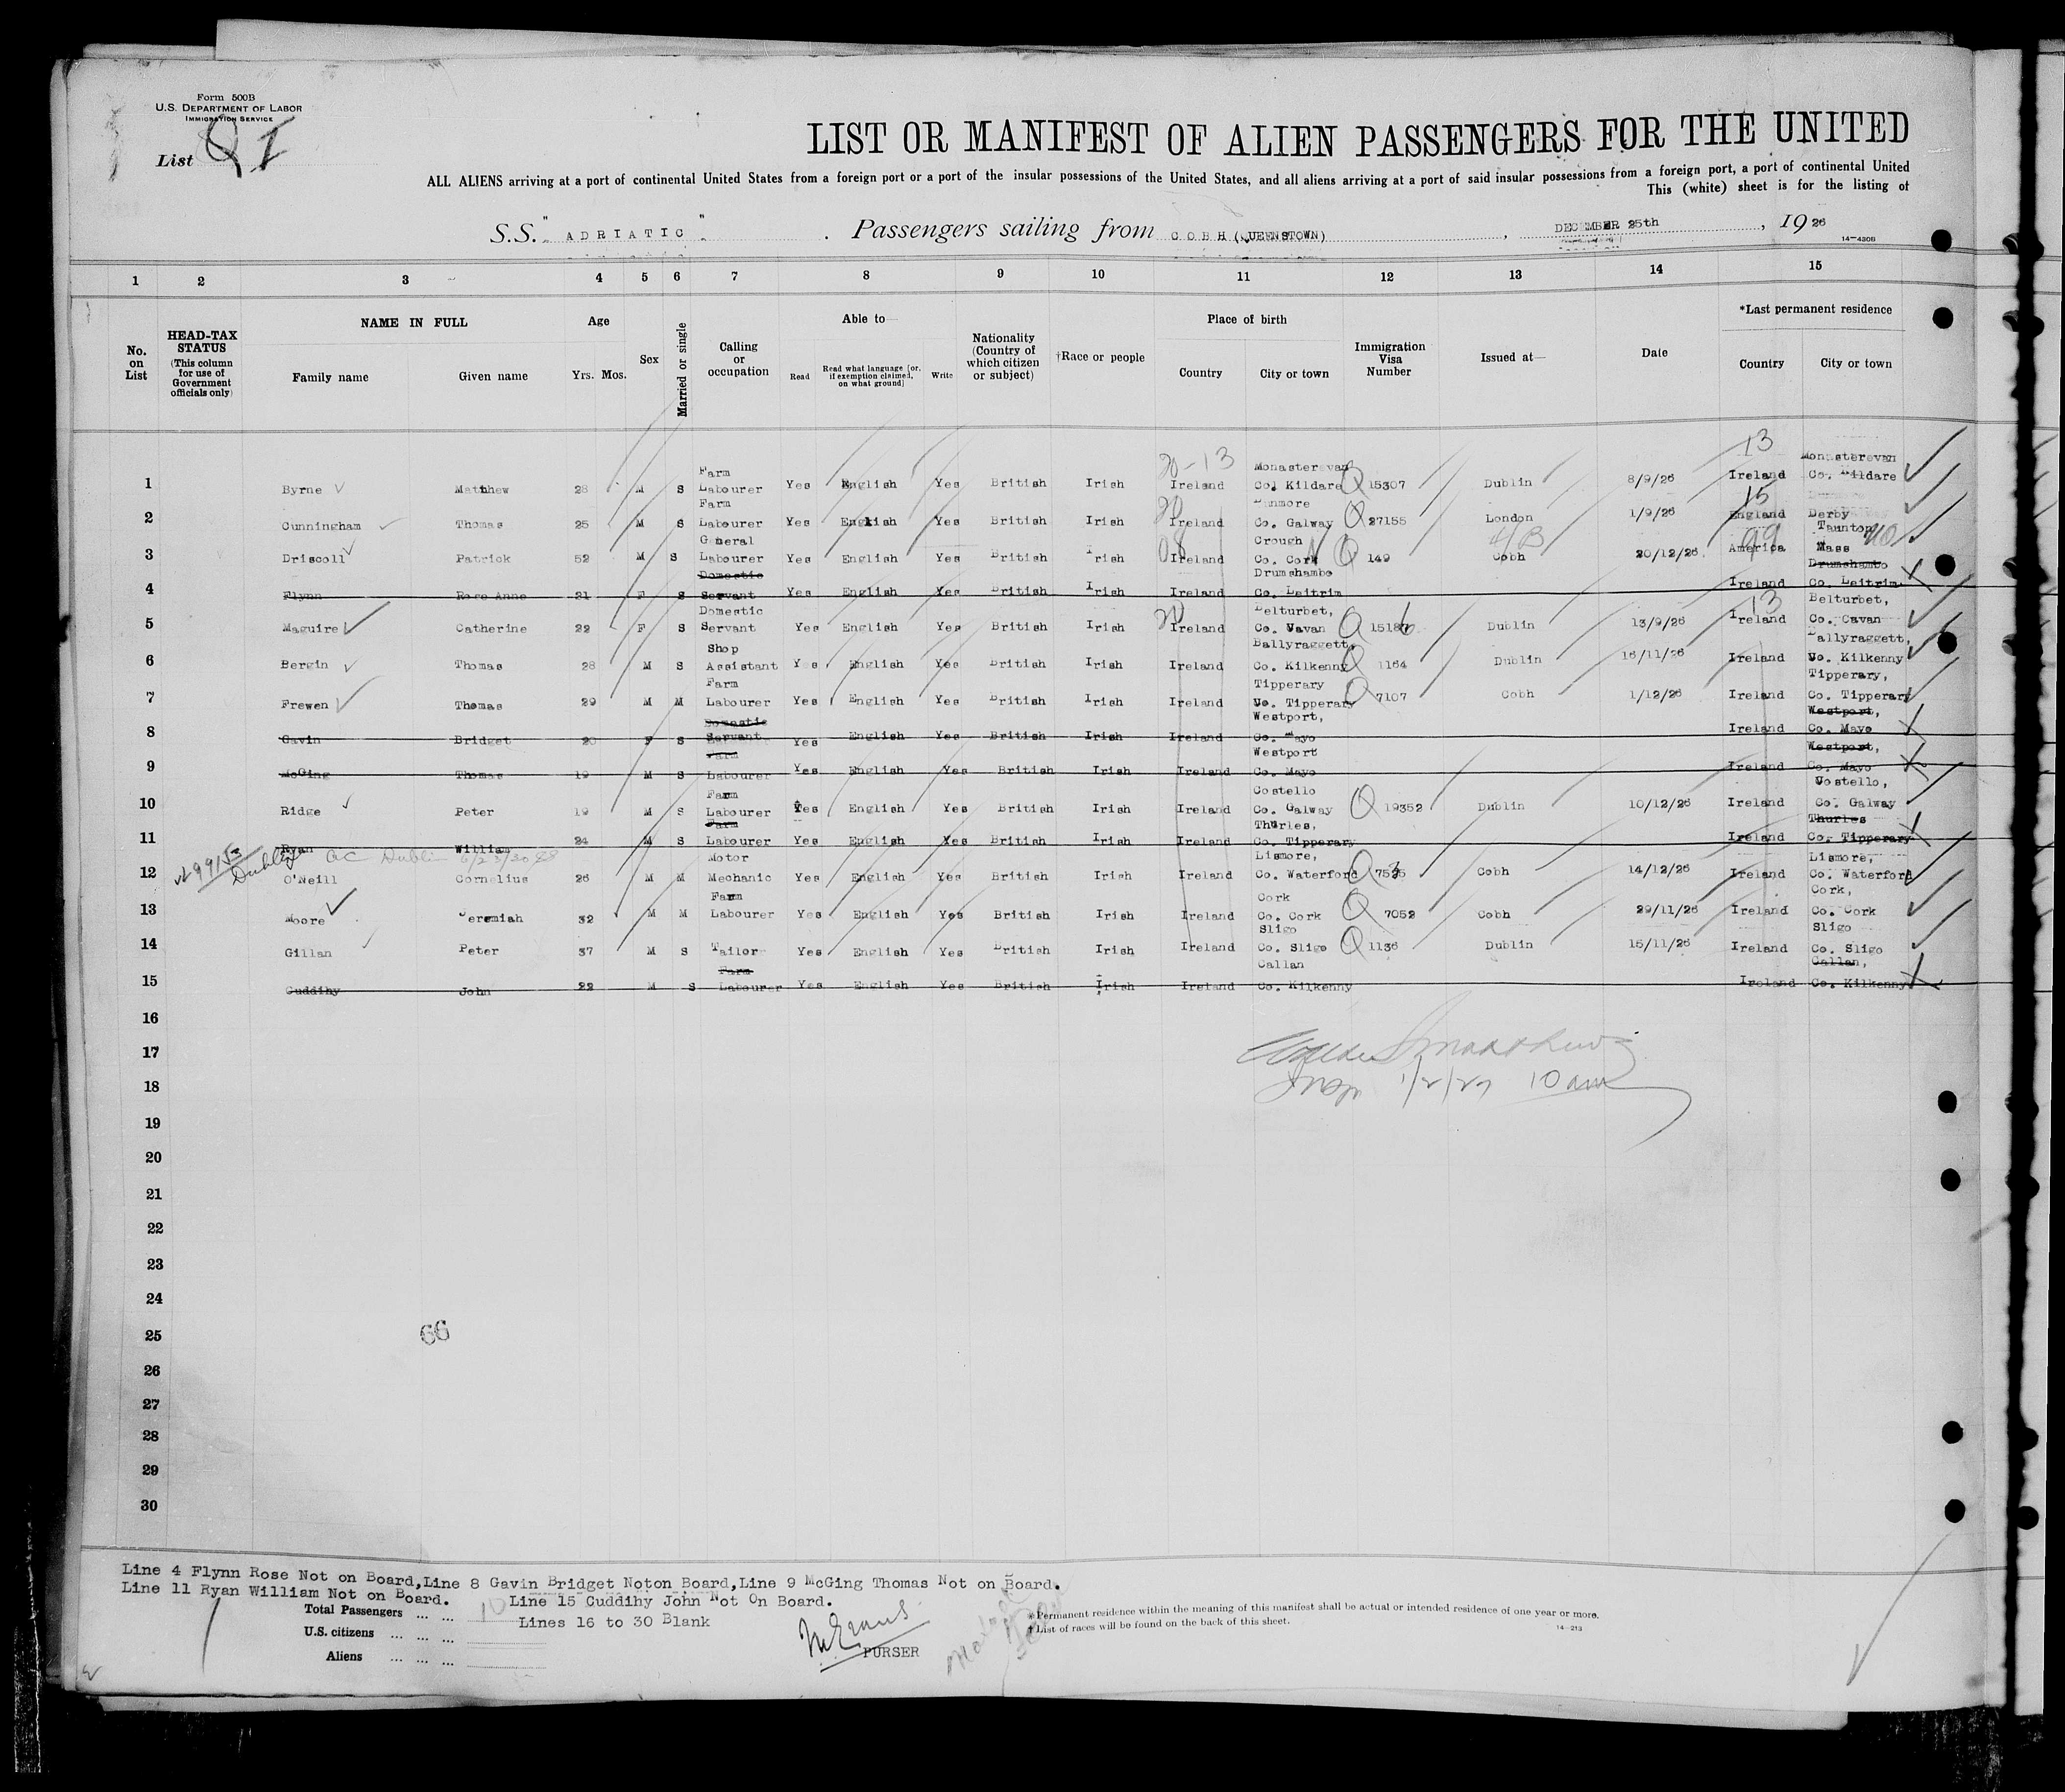 Form 500B
U.S. DEPARTMENT OF LABOR
IMMIGRATION SERVICE
List
LIST OR MANIFEST OF ALIEN PASSENGERS FOR THE UNITED
ALL ALIENS arriving at a port of continental United States from a foreign port or a port of the insular possessions of the United States, and all aliens arriving at a port of said insular possessions from a foreign port, a port of continental United
This (white) sheet is for the listing of
S.S. "ADRIATIC" . Passengers sailing from COBH (QUEENSTOWN) , DECEMBER 25th , 19 26
14-430B
1 2 3 4 5 6 7 8 9 10 11 12 13 14 15
No. on List
HEAD-TAX STATUS (This column for use of Government officials only)
NAME IN FULL
Family name Given name
Age
Yrs. Mos.
Sex
Married or single
Calling or occupation
Able to—
Read Read what language (or, if exemption claimed, on what ground) Write
Nationality (Country of which citizen or subject)
†Race or people
Place of birth
Country City or town
Immigration Visa Number
Issued at—
Date
*Last permanent residence
Country City or town
1 Byrne Matthew 28 M S Farm Labourer Yes English Yes British Irish Ireland Monasterevan Co. Kildare 15307 Dublin 8/9/26 Ireland Monasterevan Co. Kildare
2 Cunningham Thomas 25 M S Farm Labourer Yes English Yes British Irish Ireland Dunmore Co. Galway 27155 London 1/9/26 England Derby
3 Driscoll Patrick 52 M S General Labourer Yes English Yes British Irish Ireland Crough Co. Cork 149 Cobh 20/12/26 America Taunton Mass
4 Flynn Rose Anne 21 F S Domestic Servant Yes English Yes British Irish Ireland Drumshambo Co. Leitrim Ireland Drumshambo Co. Leitrim
5 Maguire Catherine 22 F S Domestic Servant Yes English Yes British Irish Ireland Belturbet, Co. Cavan 15186 Dublin 13/9/26 Ireland Belturbet, Co. Cavan
6 Bergin Thomas 28 M S Shop Assistant Yes English Yes British Irish Ireland Ballyraggett, Co. Kilkenny 1164 Dublin 16/11/26 Ireland Ballyraggett, Co. Kilkenny
7 Frewen Thomas 29 M M Farm Labourer Yes English Yes British Irish Ireland Tipperary Co. Tipperary 7107 Cobh 1/12/26 Ireland Tipperary, Co. Tipperary
8 Gavin Bridget 20 F S Domestic Servant Yes English Yes British Irish Ireland Westport, Co. Mayo Ireland Westport, Co. Mayo
9 McGing Thomas 19 M S Farm Labourer Yes English Yes British Irish Ireland Westport Co. Mayo Ireland Westport, Co. Mayo
10 Ridge Peter 19 M S Farm Labourer Yes English Yes British Irish Ireland Costello Co. Galway 19352 Dublin 10/12/26 Ireland Costello, Co. Galway
11 Ryan William 24 M S Farm Labourer Yes English Yes British Irish Ireland Thurles, Co. Tipperary Ireland Thurles Co. Tipperary
Dublin
12 O'Neill Cornelius 26 M M Motor Mechanic Yes English Yes British Irish Ireland Lismore, Co. Waterford 7535 Cobh 14/12/26 Ireland Lismore, Co. Waterford
13 Moore Jeremiah 32 M M Farm Labourer Yes English Yes British Irish Ireland Cork Co. Cork 7052 Cobh 29/11/26 Ireland Cork, Co. Cork
14 Gillan Peter 37 M S Tailor Yes English Yes British Irish Ireland Sligo Co. Sligo 1136 Dublin 15/11/26 Ireland Sligo Co. Sligo
15 Cuddihy John 22 M S Farm Labourer Yes English Yes British Irish Ireland Callan Co. Kilkenny Ireland Callan, Co. Kilkenny
16
17
Insp 1/2/27 10 am
18
19
20
21
22
23
24
25
66
26
27
28
29
30
Line 4 Flynn Rose Not on Board,Line 8 Gavin Bridget Noton Board,Line 9 McGing Thomas Not on Board.
Line 11 Ryan William Not on Board. Line 15 Cuddihy John Not On Board.
Total Passengers ... ... 10
Lines 16 to 30 Blank
U.S. citizens ... ... ...
Aliens ... ... ...
M Evans
PURSER
*Permanent residence within the meaning of this manifest shall be actual or intended residence of one year or more.
†List of races will be found on the back of this sheet.
14-213